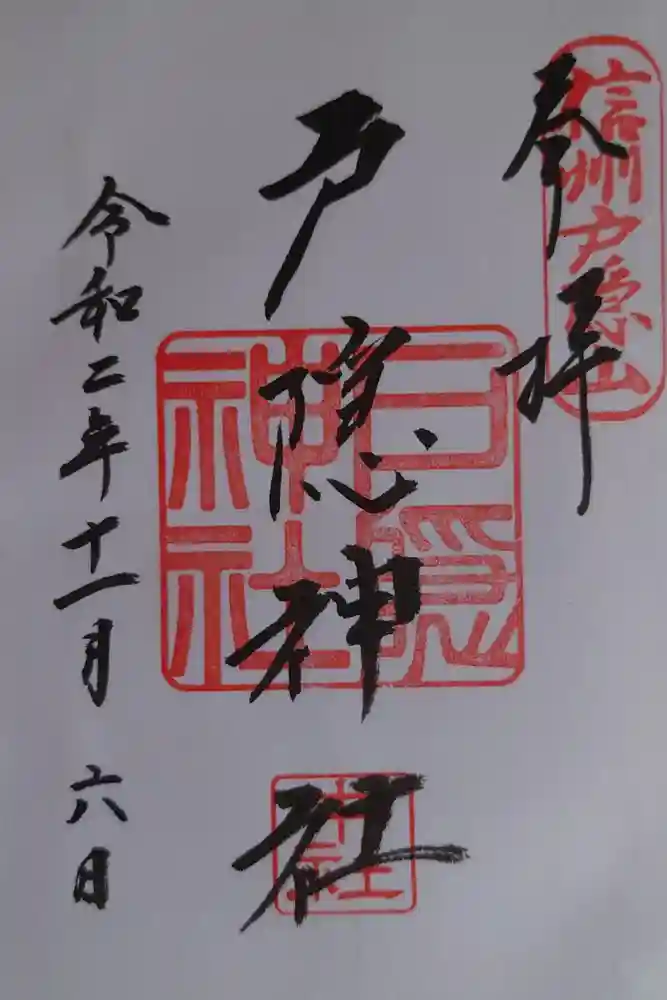 信州戸隠山
奉拝
戸隠神社
戸隠
神社
中社
令和二年十一月六日